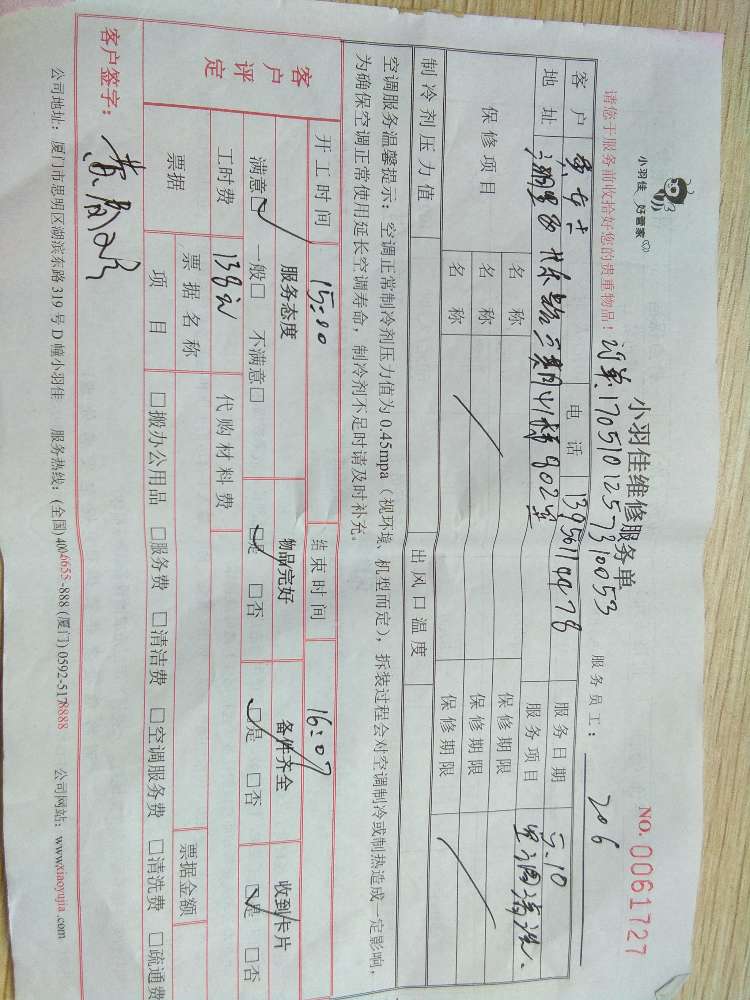 小羽佳 好管家
小羽佳维修服务单
NO. 0061727
请您于服务前收拾好您的贵重物品! 订单:17051012573 10053 服务员工: 206
客户 女士 电话 13950114978 服务日期 5.10
地址 802室 服务项目 空调清洗.
保修项目 名称 保修期限
名称 保修期限
名称 保修期限
制冷剂压力值 出风口温度
空调服务温馨提示:空调正常制冷剂压力值为0.45mpa(视环境、机型而定),拆装过程会对空调制冷或制热造成一定影响,
为确保空调正常使用延长空调寿命,制冷剂不足时请及时补充。
开工时间 15:00 结束时间 16:07
客户评定 服务态度 物品完好 备件齐全 收到卡片
满意□ 一般□ 不满意□ □是 □否 □是 □否 □是 □否
工时费 138元 代购材料费
票据 票据名称 票据金额
项目 □搬办公用品 □服务费 □清洁费 □空调服务费 □清洗费 □疏通费
客户签字:
公司地址:厦门市思明区湖滨东路319号D幢小羽佳 服务热线:(全国)4004655-888 (厦门)0592-5178888 公司网站:www.xiaoyujia.com